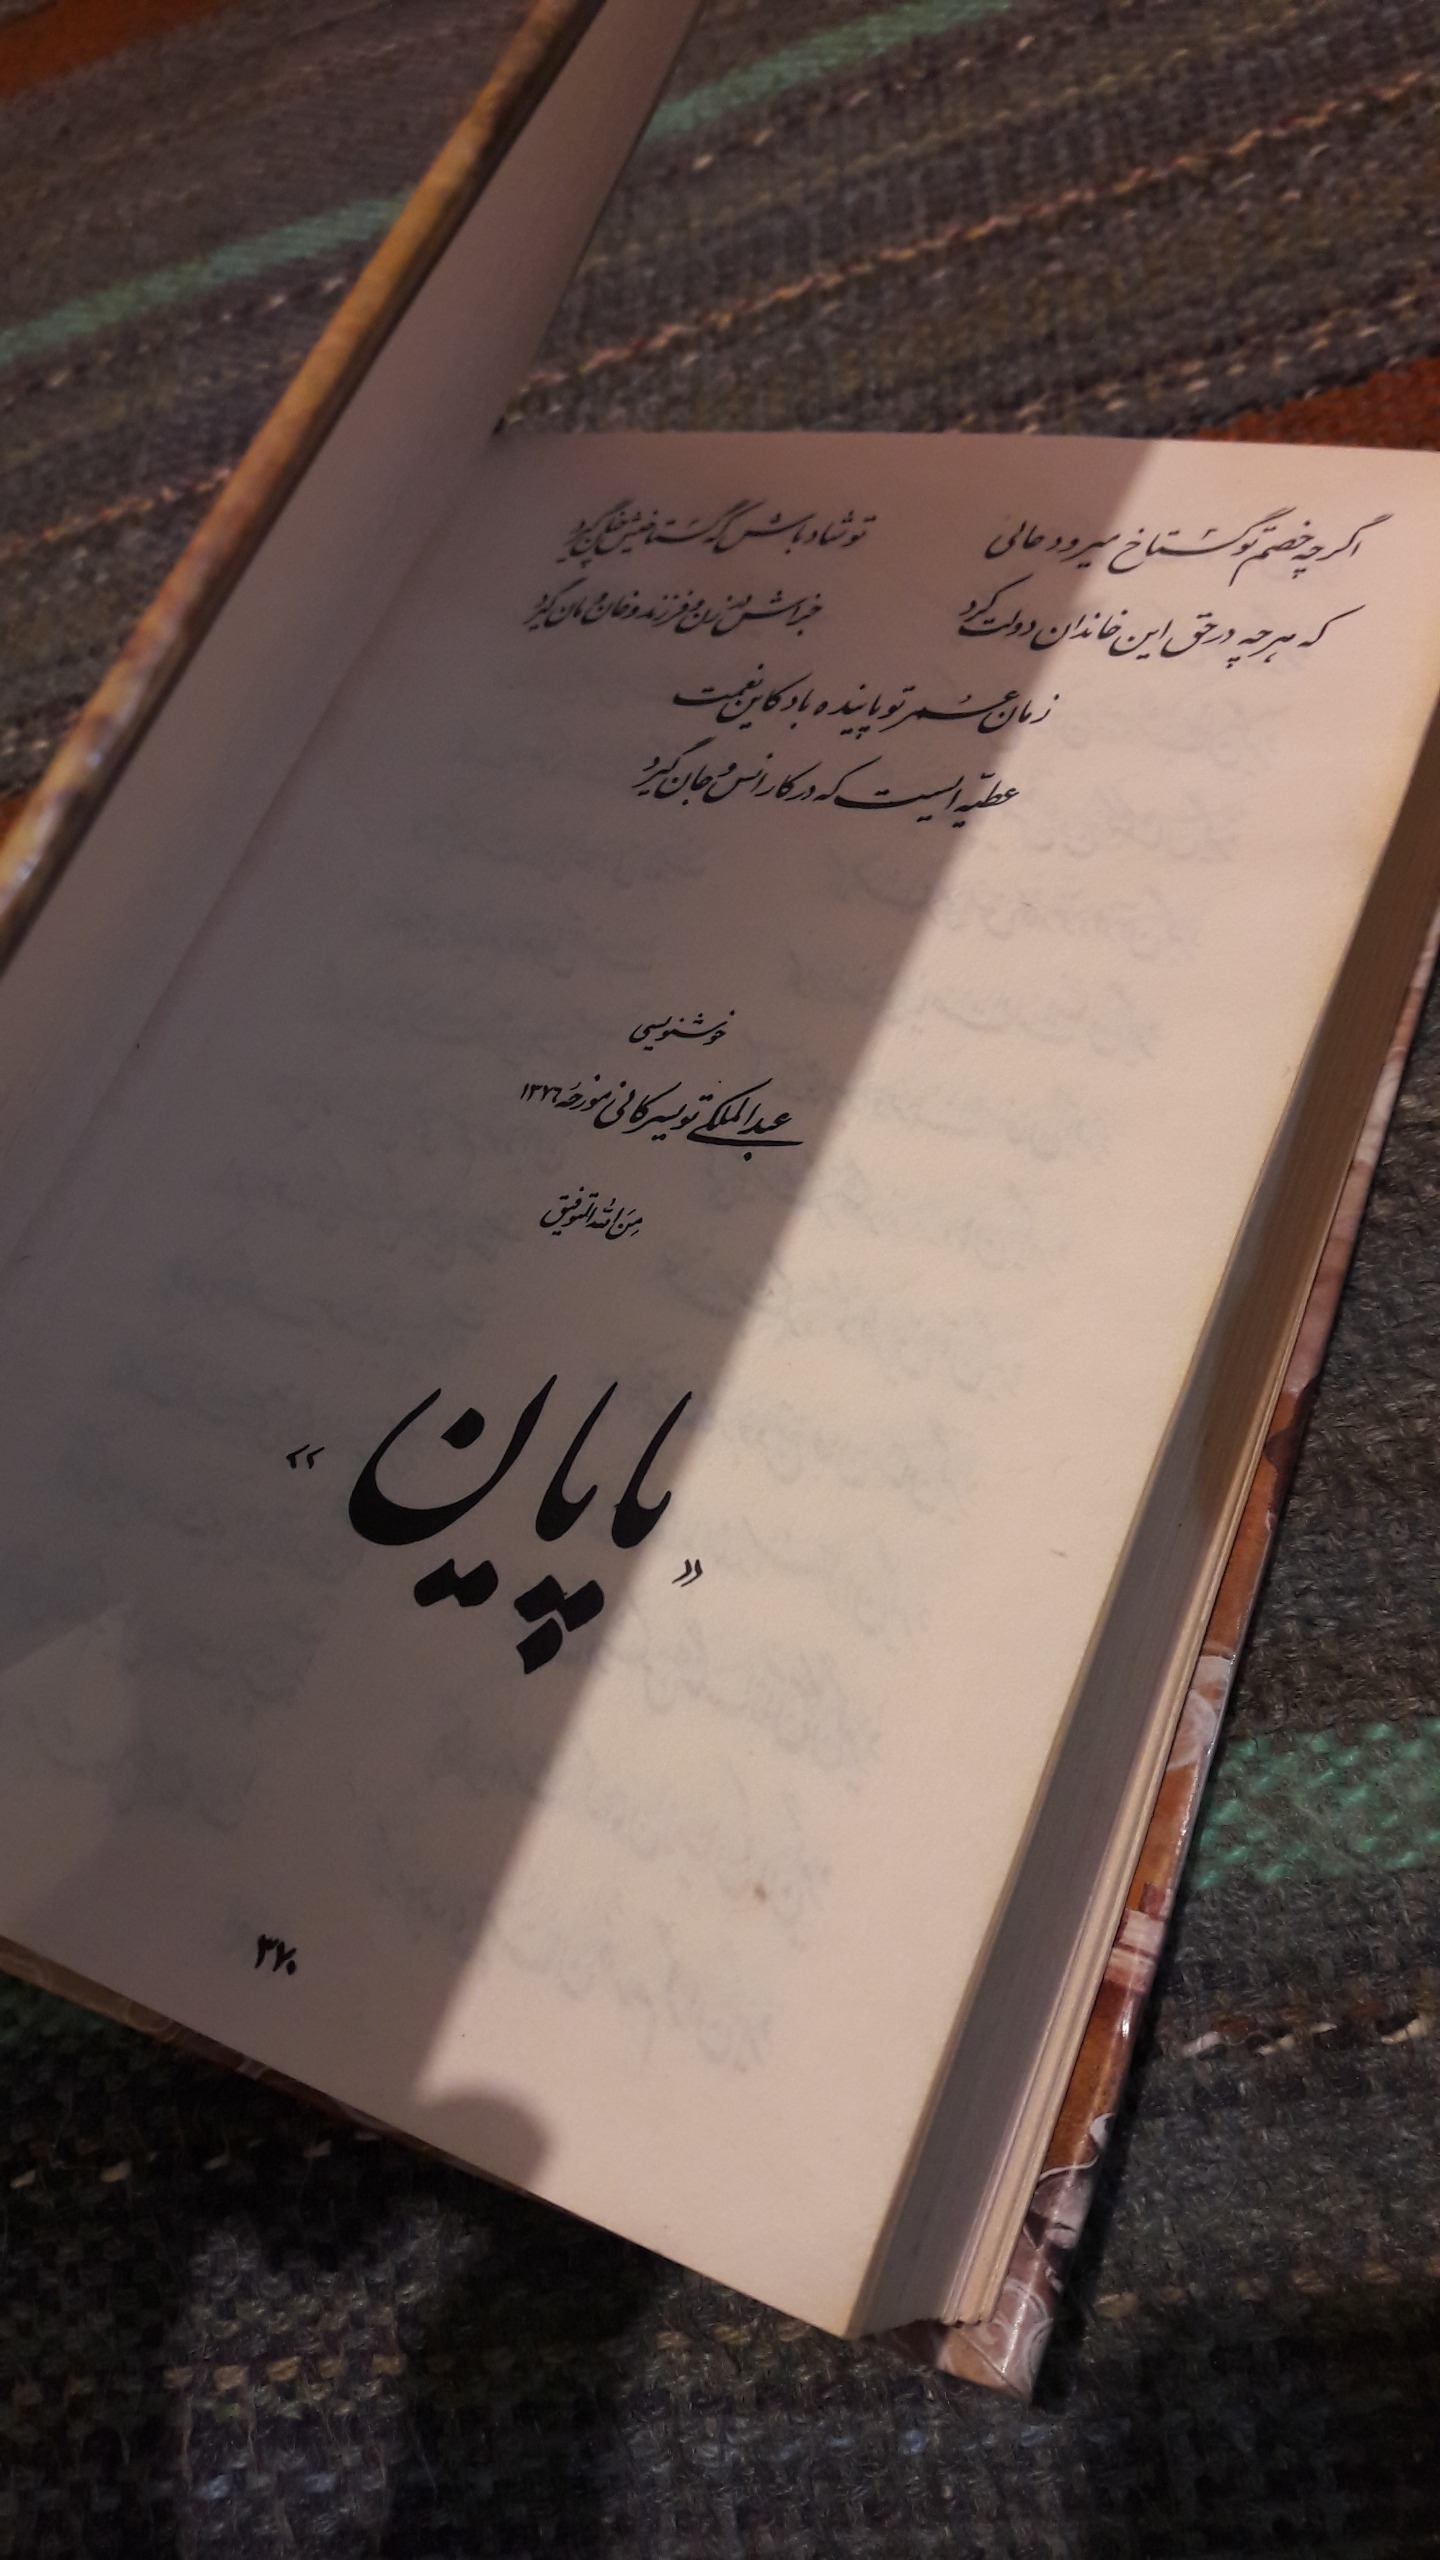 اگرچه خصم تو گستاخ میرود حالی تو شاد باش که گستاخیش چنان گیرد
که هرچه در حق این خاندان دولت کرد جزاش در زن و فرزند و خان و مان گیرد
زمان عمر تو پاینده باد کاین نعمت
عطیّه ایست که در کار انس و جان گیرد
خوشنویسی
عبدالملکی تویسرکانی مورخهٔ ۱۳۷۶
مِنَ الله التوفیق
« پایان »
۳۷۰